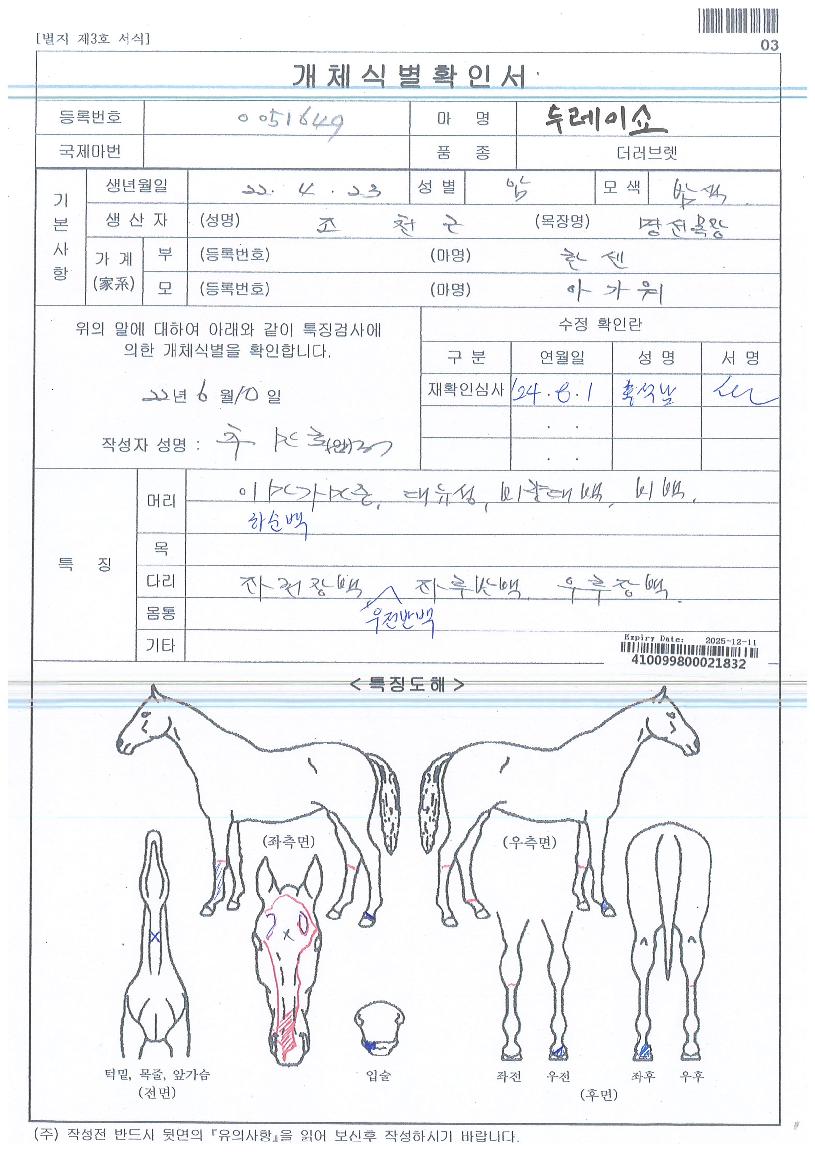 [별지 제3호 서식]
03
개체식별확인서
등록번호 0051649 마 명 두레이쇼
국제마번 품 종 더러브렛
기본사항
생년월일 22. 4. 23 성 별 암 모 색 밤색
생 산 자 (성명) 조 천 군 (목장명)
가 계 (家系) 부 (등록번호) (마명) 한센
모 (등록번호) (마명) 아가위
위의 말에 대하여 아래와 같이 특징검사에
의한 개체식별을 확인합니다.
22년 6월 10일
작성자 성명 :
수정 확인란
구 분 연월일 성 명 서 명
재확인심사 '24.6.1
. .
. .
특 징
머리 대유성, 비백.
하순백
목
다리 좌전장백 좌후반백 우후장백.
우전반백
몸통
기타
Expiry Date: 2025-12-11
410099800021832
< 특징도해 >
(좌측면) (우측면)
턱밑, 목줄, 앞가슴
(전면)
입술
좌전 우전 좌후 우후
(후면)
(주) 작성전 반드시 뒷면의 『유의사항』을 읽어 보신후 작성하시기 바랍니다.